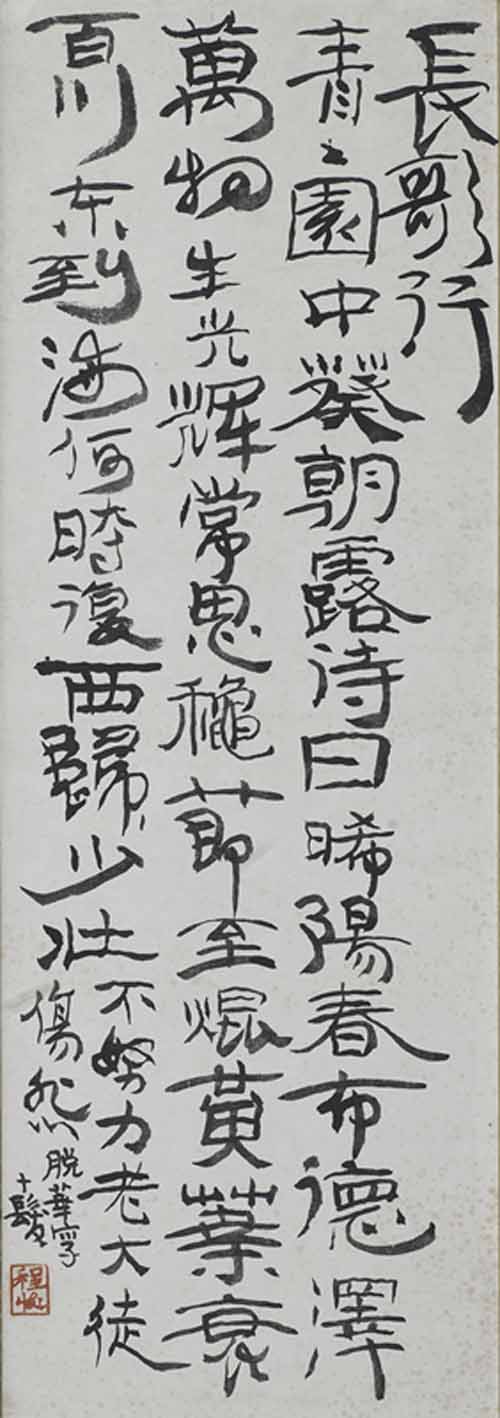 長歌行
青〻園中葵朝露待日晞陽春布德澤
萬物生光輝常思穐節至焜黄葉衰
百川東到海何時復西歸少壯
不努力老大徒
傷悲
脱華字
十髮